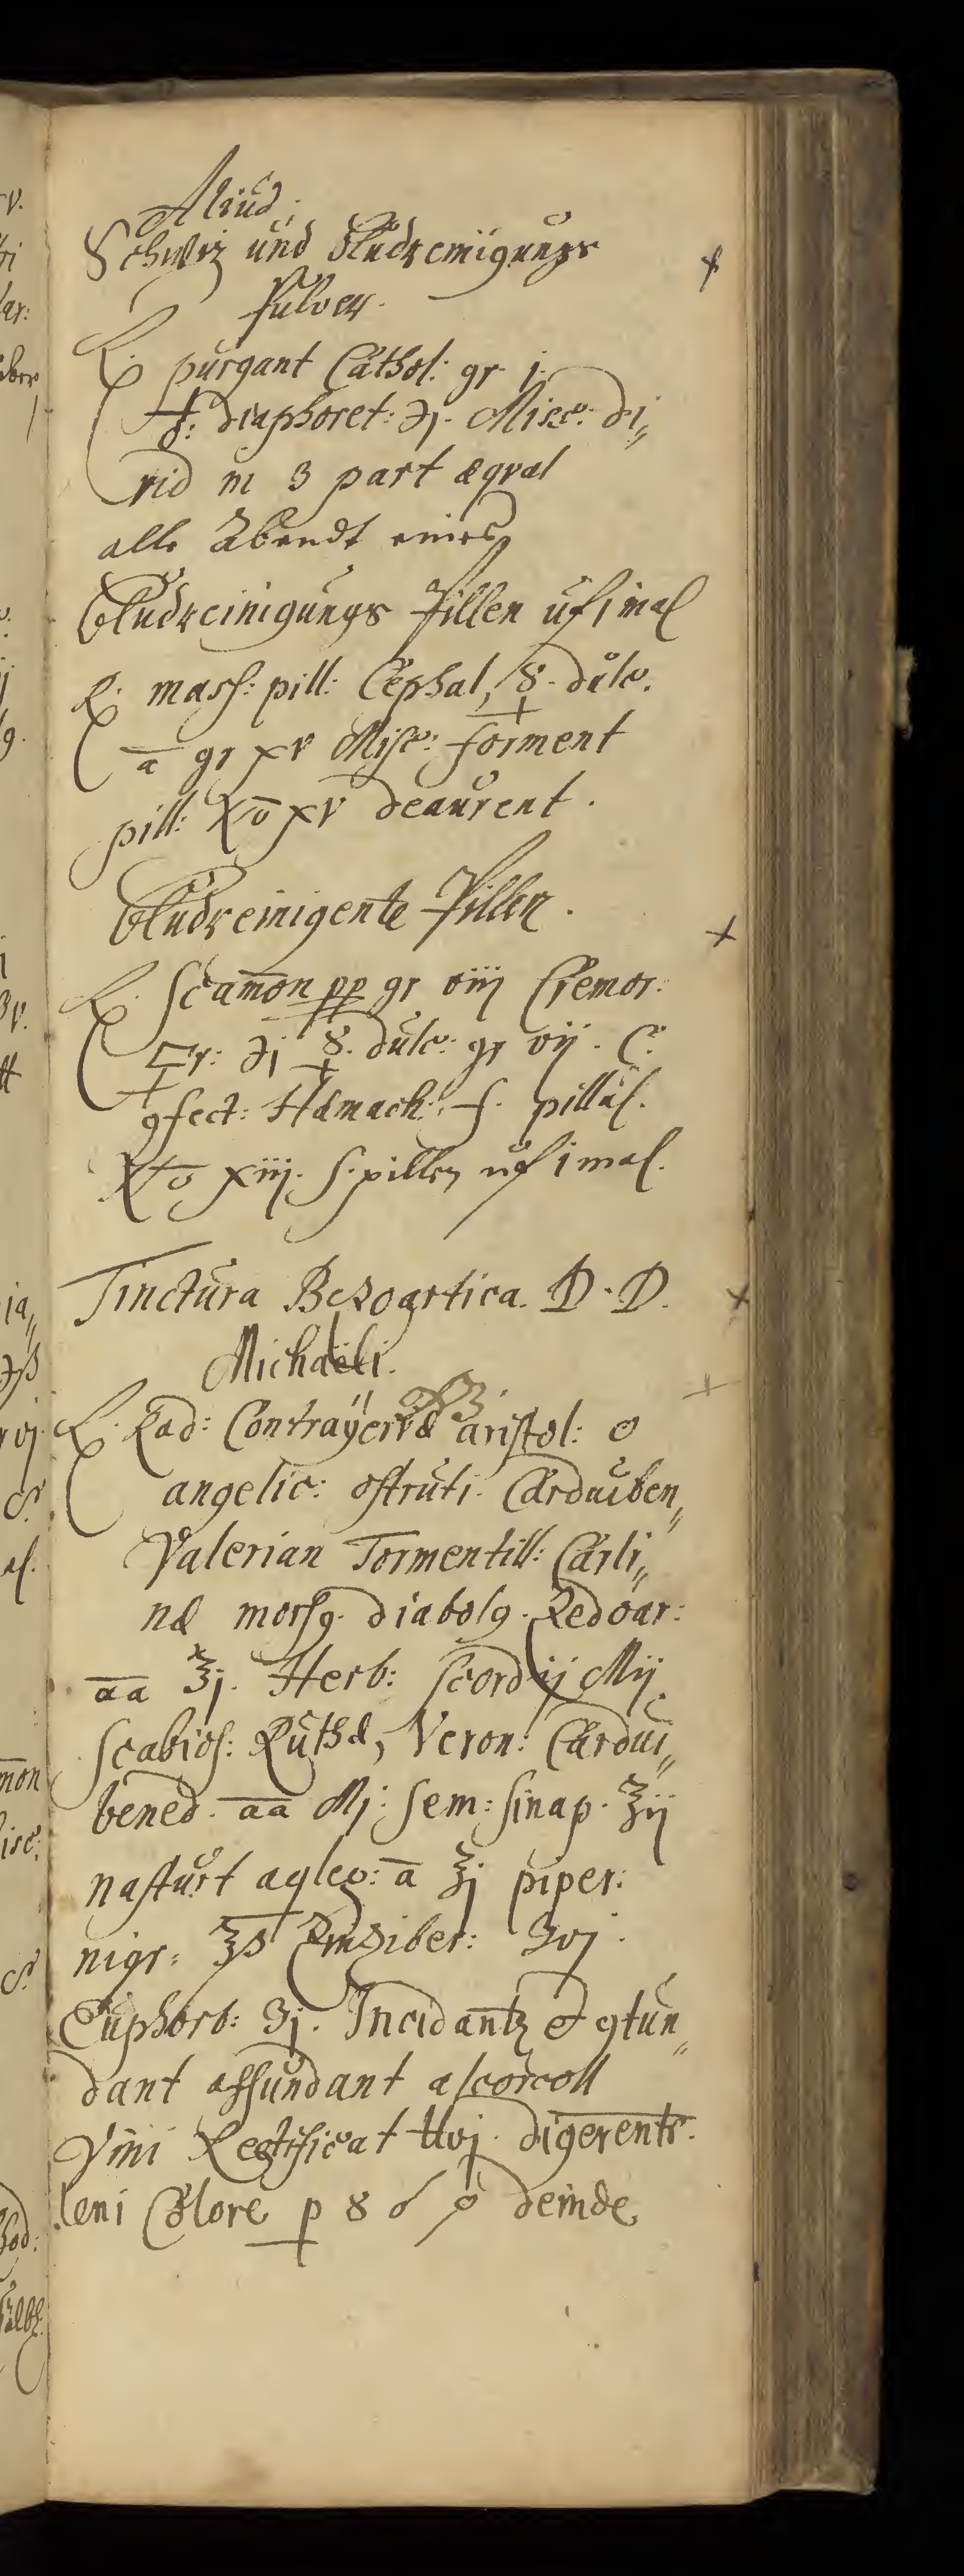 Aliud.
Schweiz und Bludreinigungs
Pulver.
℞. purgant Cathol: gr j.
♁: diaphoret: ℈j. Misce: di„
vid in 3 part æqval
alle Abendt eines
Bludreinigungs Pillen uf 1 mal
℞. mass: pill: Cephal, ☿. dulc.
a̅ gr xv Misc: forment
pill: No xv deaurent.
Bludreinigente Pillen.
℞. Scam̅on pp gr viij Cremor:
🜿r: ℈j ☿. dulc: gr vij. C.
ꝯfect: Hamach: f. pillul.
No xiij. S. pillen uf 1 mal.
Tinctura Bezoartica. D. D.
Michaëli.
℞. Rad: Contrayervæ aristol: o
angelic: ostruti. Carduiben„
Valerian Tormentill: Carli„
næ morsꝯ. diabolꝯ. Zedoar:
a̅a̅ ℥j. Herb: Scordij Mij
Scabios: Ruthæ, Veron: Cardui„
bened. a̅a̅ Mj. Sem: sinap. ℥ij
nasturt aqleꝯ: a̅ ℥j piper:
nigr: ℥ß Zinziber: ʒvj.
Euphorb: ʒj. Incidantꝫ et ꝯtun„
dant affundant alcorcoll
Vini Rectificat ℔vj. digerentr.
leni Calore p 8 deinde